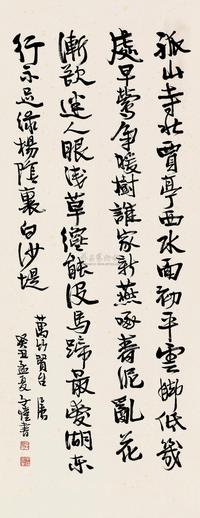 孤山寺北賈亭西水面初平雲腳低幾
處早鶯爭暖樹誰家新燕啄春泥亂花
漸欲迷人眼淺草纔能沒馬蹄最愛湖東
行不足綠楊陰裏白沙堤
賢台 屬
癸丑孟夏子愷書